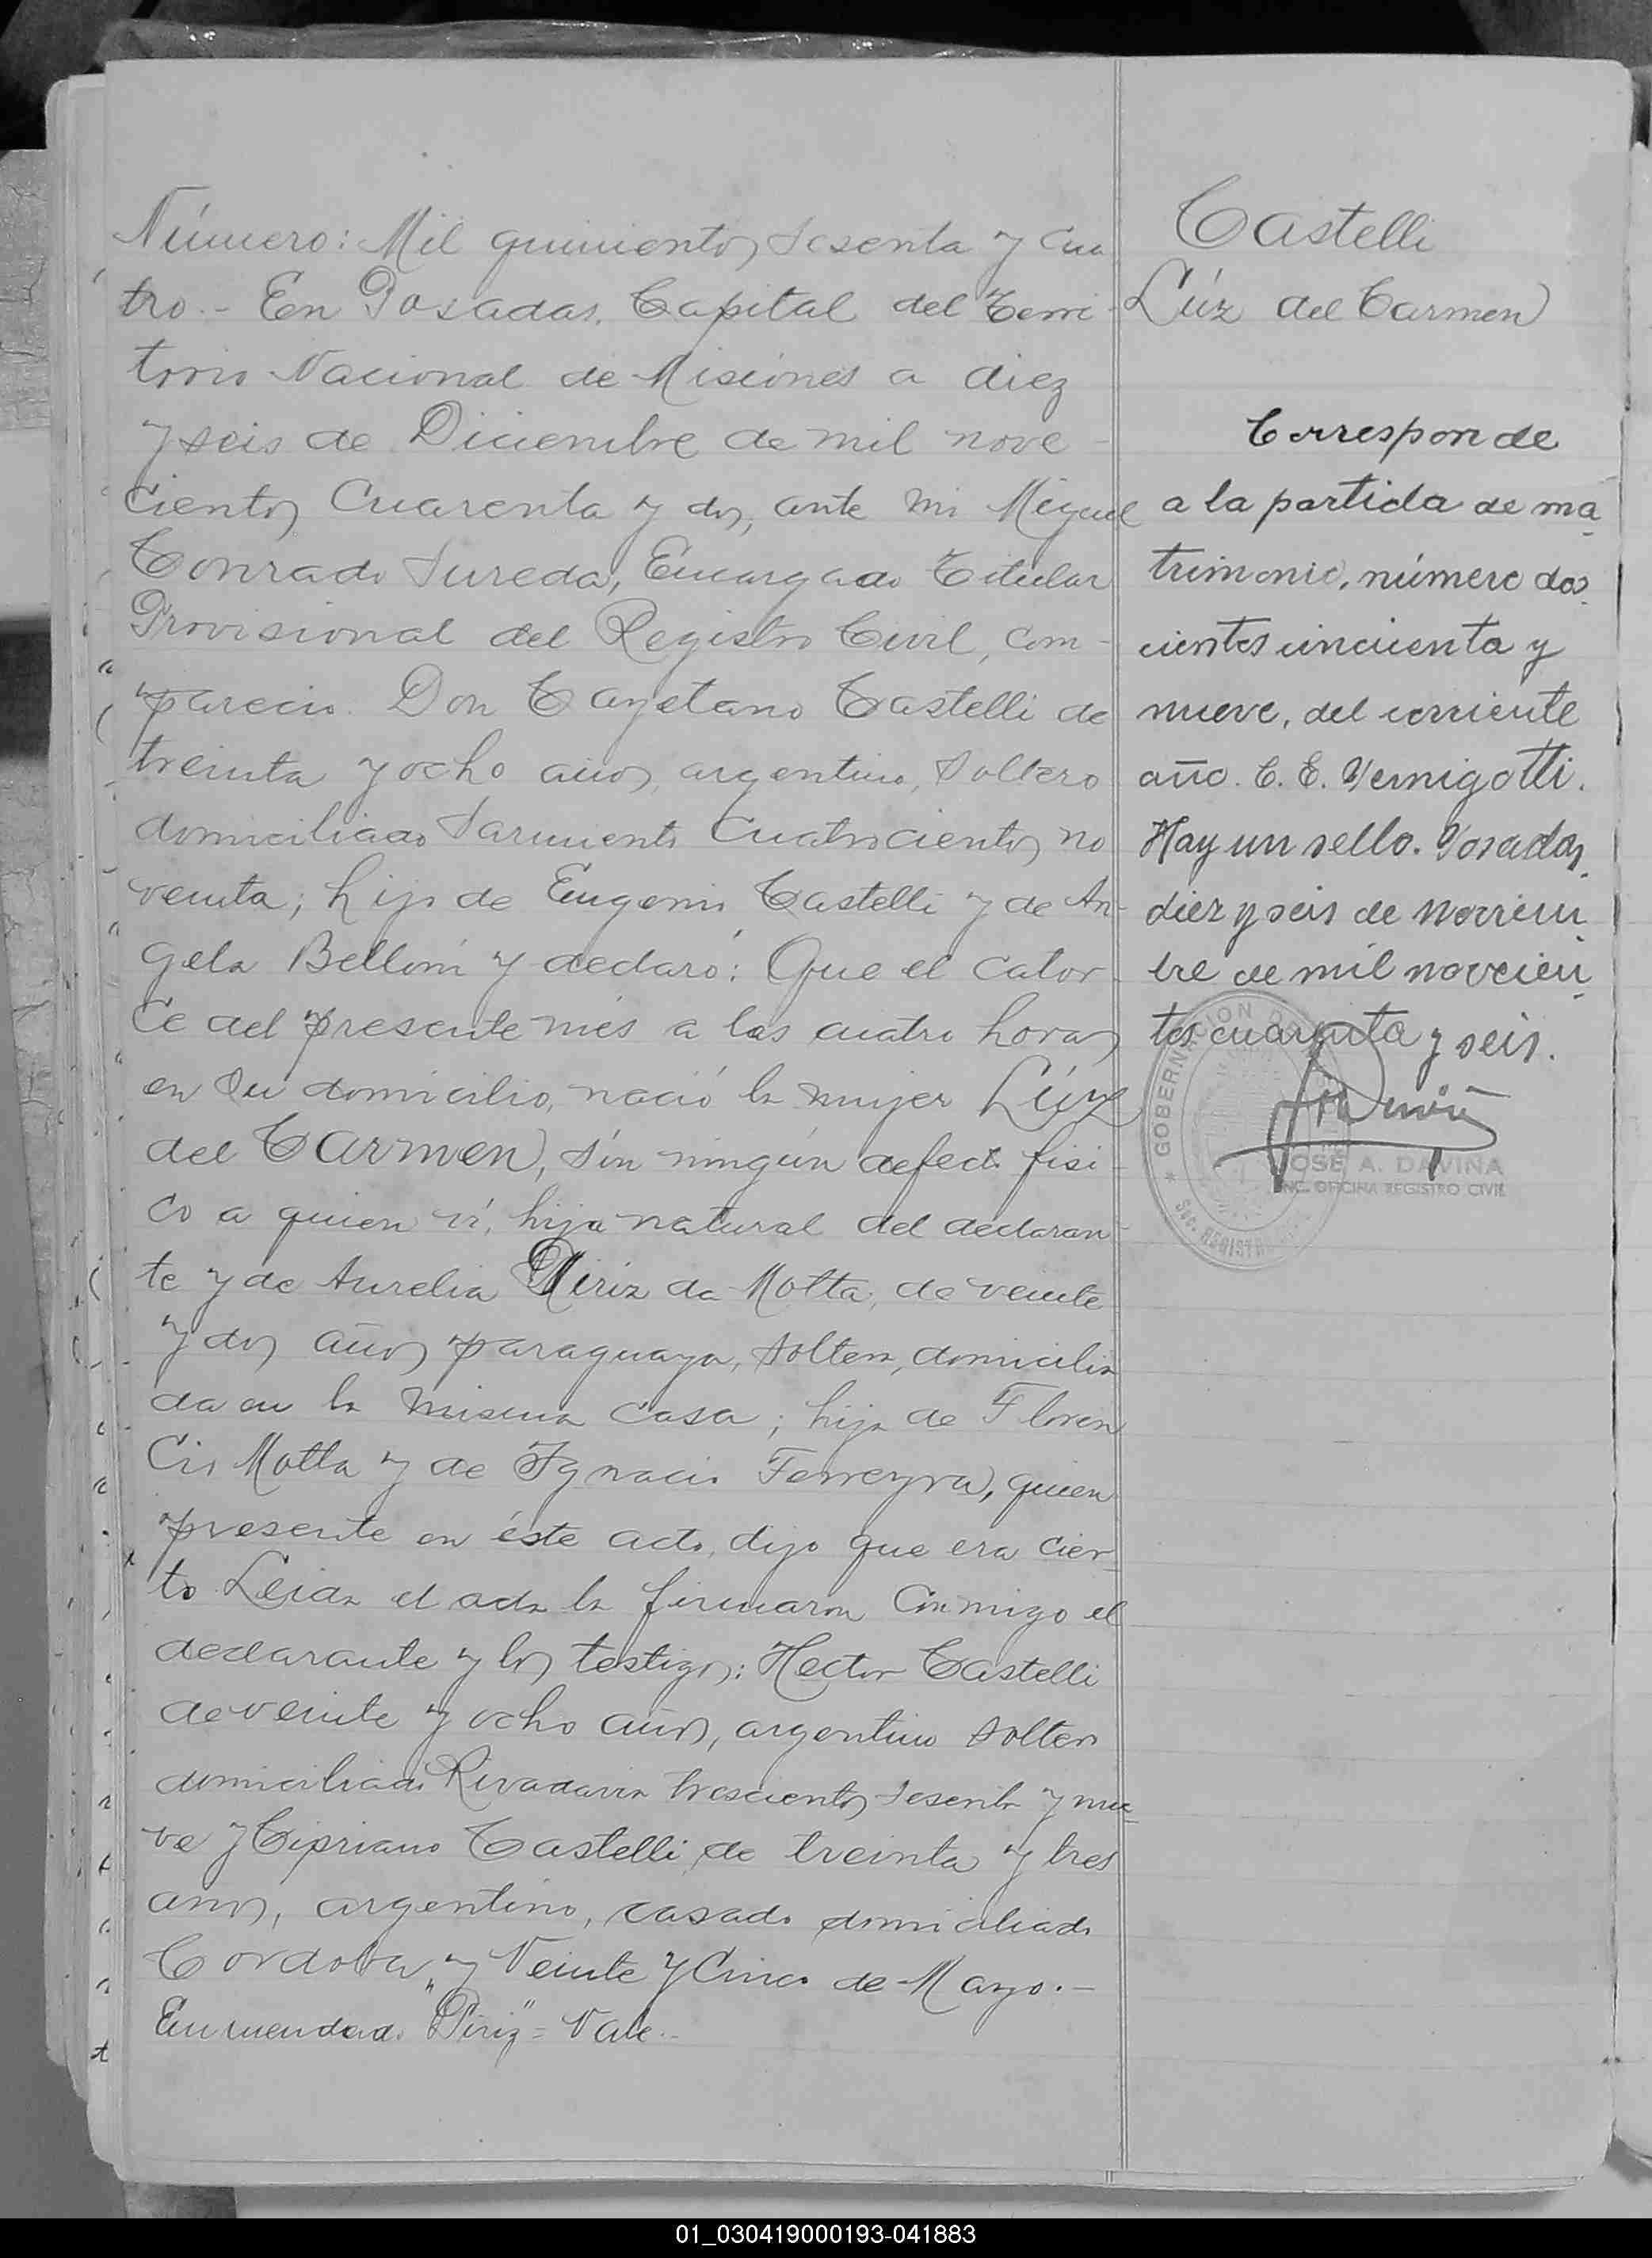 Número: Mil quinientos sesenta y cua
tro.- En Posadas, Capital del Terri-
torio Nacional de Misiones a diez
y seis de Diciembre de mil nove-
cientos cuarenta y dos, ante mi Miguel
Conrado Sureda, Encargado Titular
Provisional del Registro Civil, com-
pareció Don Cayetano Castelli de
treinta y ocho años, argentino, soltero
domiciliado Sarmiento cuatrocientos no
venta; hijo de Eugenio Castelli y de An-
gela Belloni y declaró: Que el cator-
ce del presente més a las cuatro horas
en su domicilio, nació la mujer Lúz
del Carmen, sin ningún defecto fisi-
co a quien ví, hija natural del declaran-
te y de Aurelia Piriz da Motta, de veinte
y dos años paraguaya, soltera, domicilia
da en la misma casa; hija de Floren
cio Motta y de Ignacia Ferreyra, quien
presente en éste acto, dijo que era cier-
to Leida el acta la firmaron conmigo el
declarante y los testigos: Hector Castelli
de veinte y ocho años, argentino soltero
domiciliado Rivadavia trescientos sesenta y nue-
ve y Cipriano Castelli de treinta y tres
años, argentino, casado domiciliado
Cordoba y Veinte y Cinco de Mayo.-
Enmendado "Piriz" = Vale.-
Castelli
Lúz del Carmen
Corresponde
a la partida de ma
trimonio, número dos
cientos cincuenta y
nueve, del corriente
año. C. E. Vernigotti.
Hay un sello. Posadas,
diez y seis de noviem
bre de mil novecien
tos cuarenta y seis.
GOBERNACION DE
JOSE A. DAVIÑA
ENC. OFICINA REGISTRO CIVIL
01_030419000193-041883